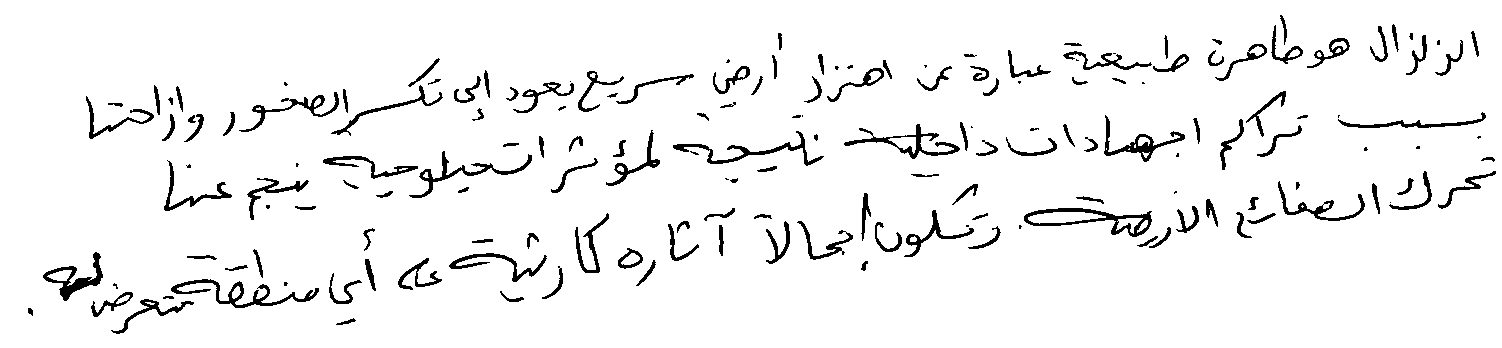 الزلزال هو ظاهرة طبيعية عبارة عن اهتزاز أرضي سريع يعود إلى تكسر الصخور وازاحتها
بسبب تراكم اجهادات داخلية نتيجة لمؤثرات جيلوجية ينجم عنها
تحرك الصفائح الأرضية. وتكون إجمالاً آثاره كارثية على أي منطقة تتعرض له.